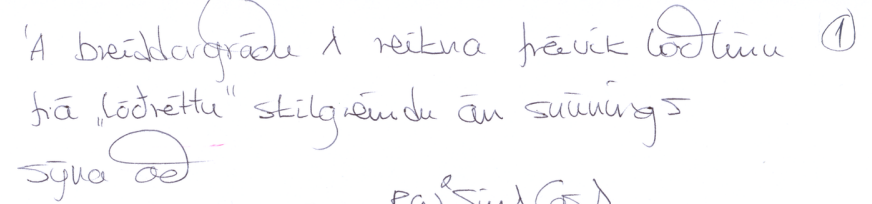 Á breiddargráðu λ reikna frávik lóðlínu ①
frá „lóðréttu“ skilgreindu án snúnings
sýna að
Rω²sinλcosλ